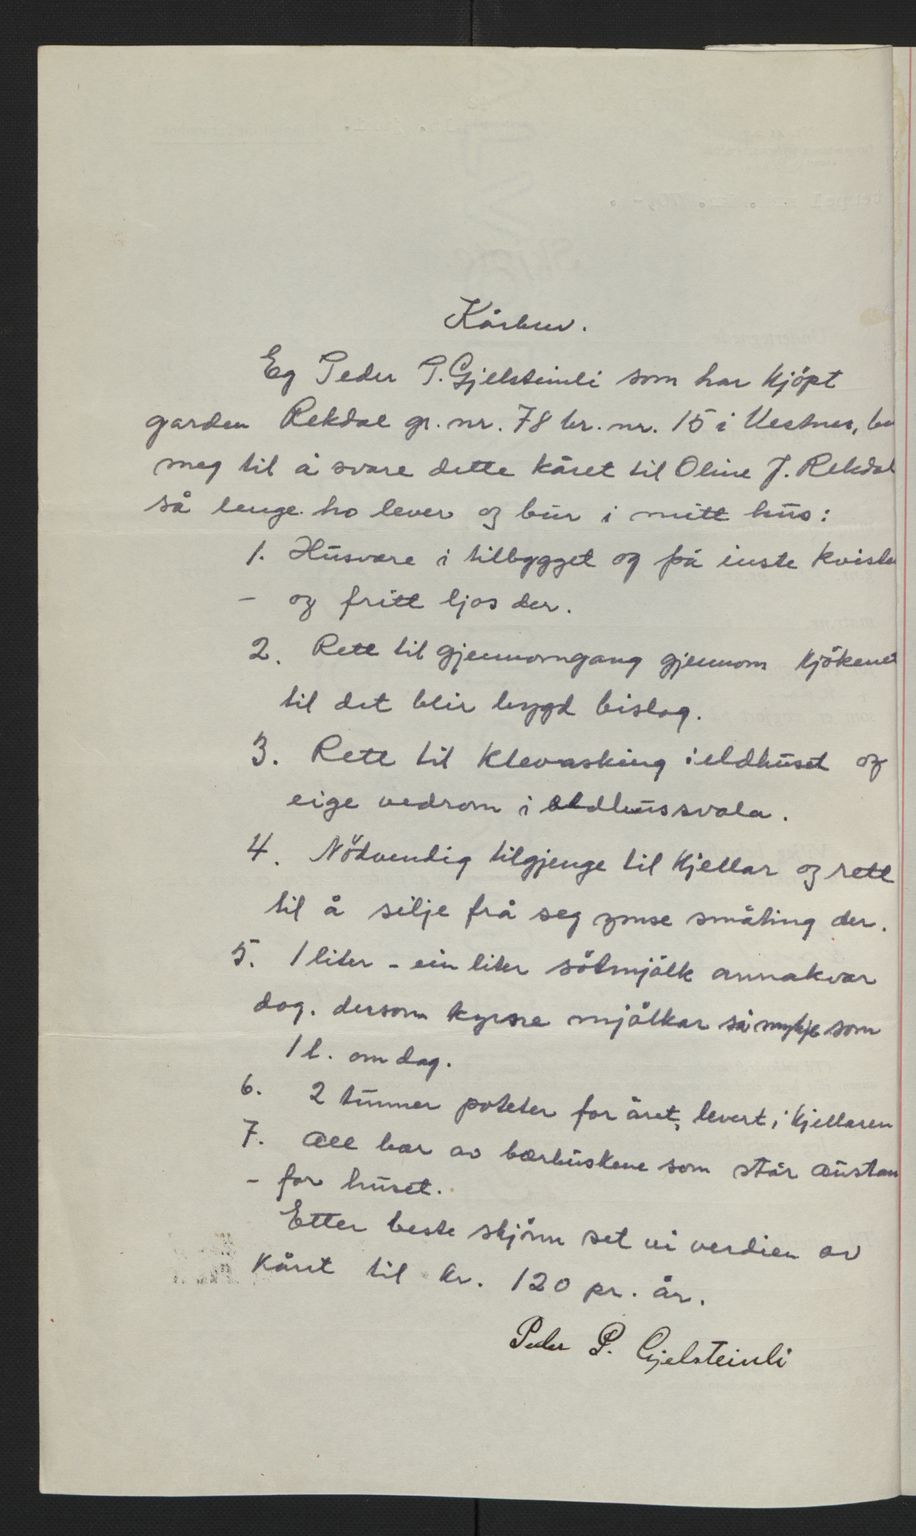 Kårbrev.
Eg Peder P. Gjelsteinli som har kjöpt
garden Rekdal gr. nr. 78 br. nr. 15 i Vestnes,
meg til å svare dette kåret til Oline J. Rekdal
så lenge ho lever og bur i mitt hus:
1. Husvære i tilbygget og på inste kviste
- og fritt ljos der.
2. Rett til gjennomgang gjennom kjökenet
til det blir bygd bislag.
3. Rett til klevasking i eldhuset og
eige vedrom i eldhussvala.
4. Nödvendig tilgjenge til kjellar og rett
til å silje frå seg ymse småting der.
5. 1 liter - ein liter sötmjölk annakvar
dag. dersom kyrne mjölkar så mykje som
1 l. om dag.
6. 2 tunner poteter for året, levert i kjellaren
7. All bær av bærbuskene som står austan
- for huset.
Etter beste skjönn set vi verdien av
kåret til kr. 120 pr. år.
Peder P. Gjelsteinli